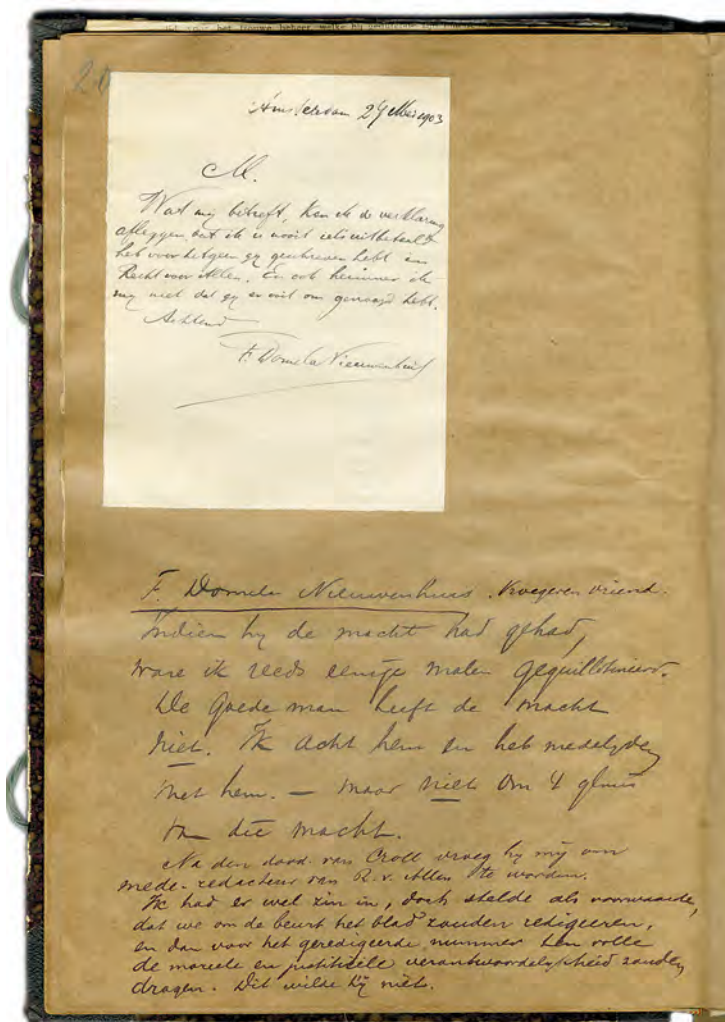 20
Amsterdam 29 Mei 1903
M.
Wat mij betreft, kan ik de verklaring
afleggen dat ik u nooit iets uitbetaald
heb voor hetgeen gij geschreven hebt in
Recht voor Allen. En ook herinner ik
mij niet dat gij er ooit om gevraagd hebt.
Achtend
F. Domela Nieuwenhuis
F. Domela Nieuwenhuis. Vroegeren vriend.
Indien hij de macht had gehad,
ware ik reeds eenige malen geguillotineerd.
De goede man heeft de macht
niet. Ik acht hem en heb medelijden
met hem. — maar niet om
die macht.
Na den dood van Croll vroeg hij mij om
mede-redacteur van R. v. Allen te worden.
Ik had er wel zin in, doch stelde als voorwaarde,
dat we om de beurt het blad zouden redigeeren,
en dan voor het geredigeerde nummer ten volle
de moreele en justitieële verantwoordelijkheid zouden
dragen. Dit wilde hij niet.